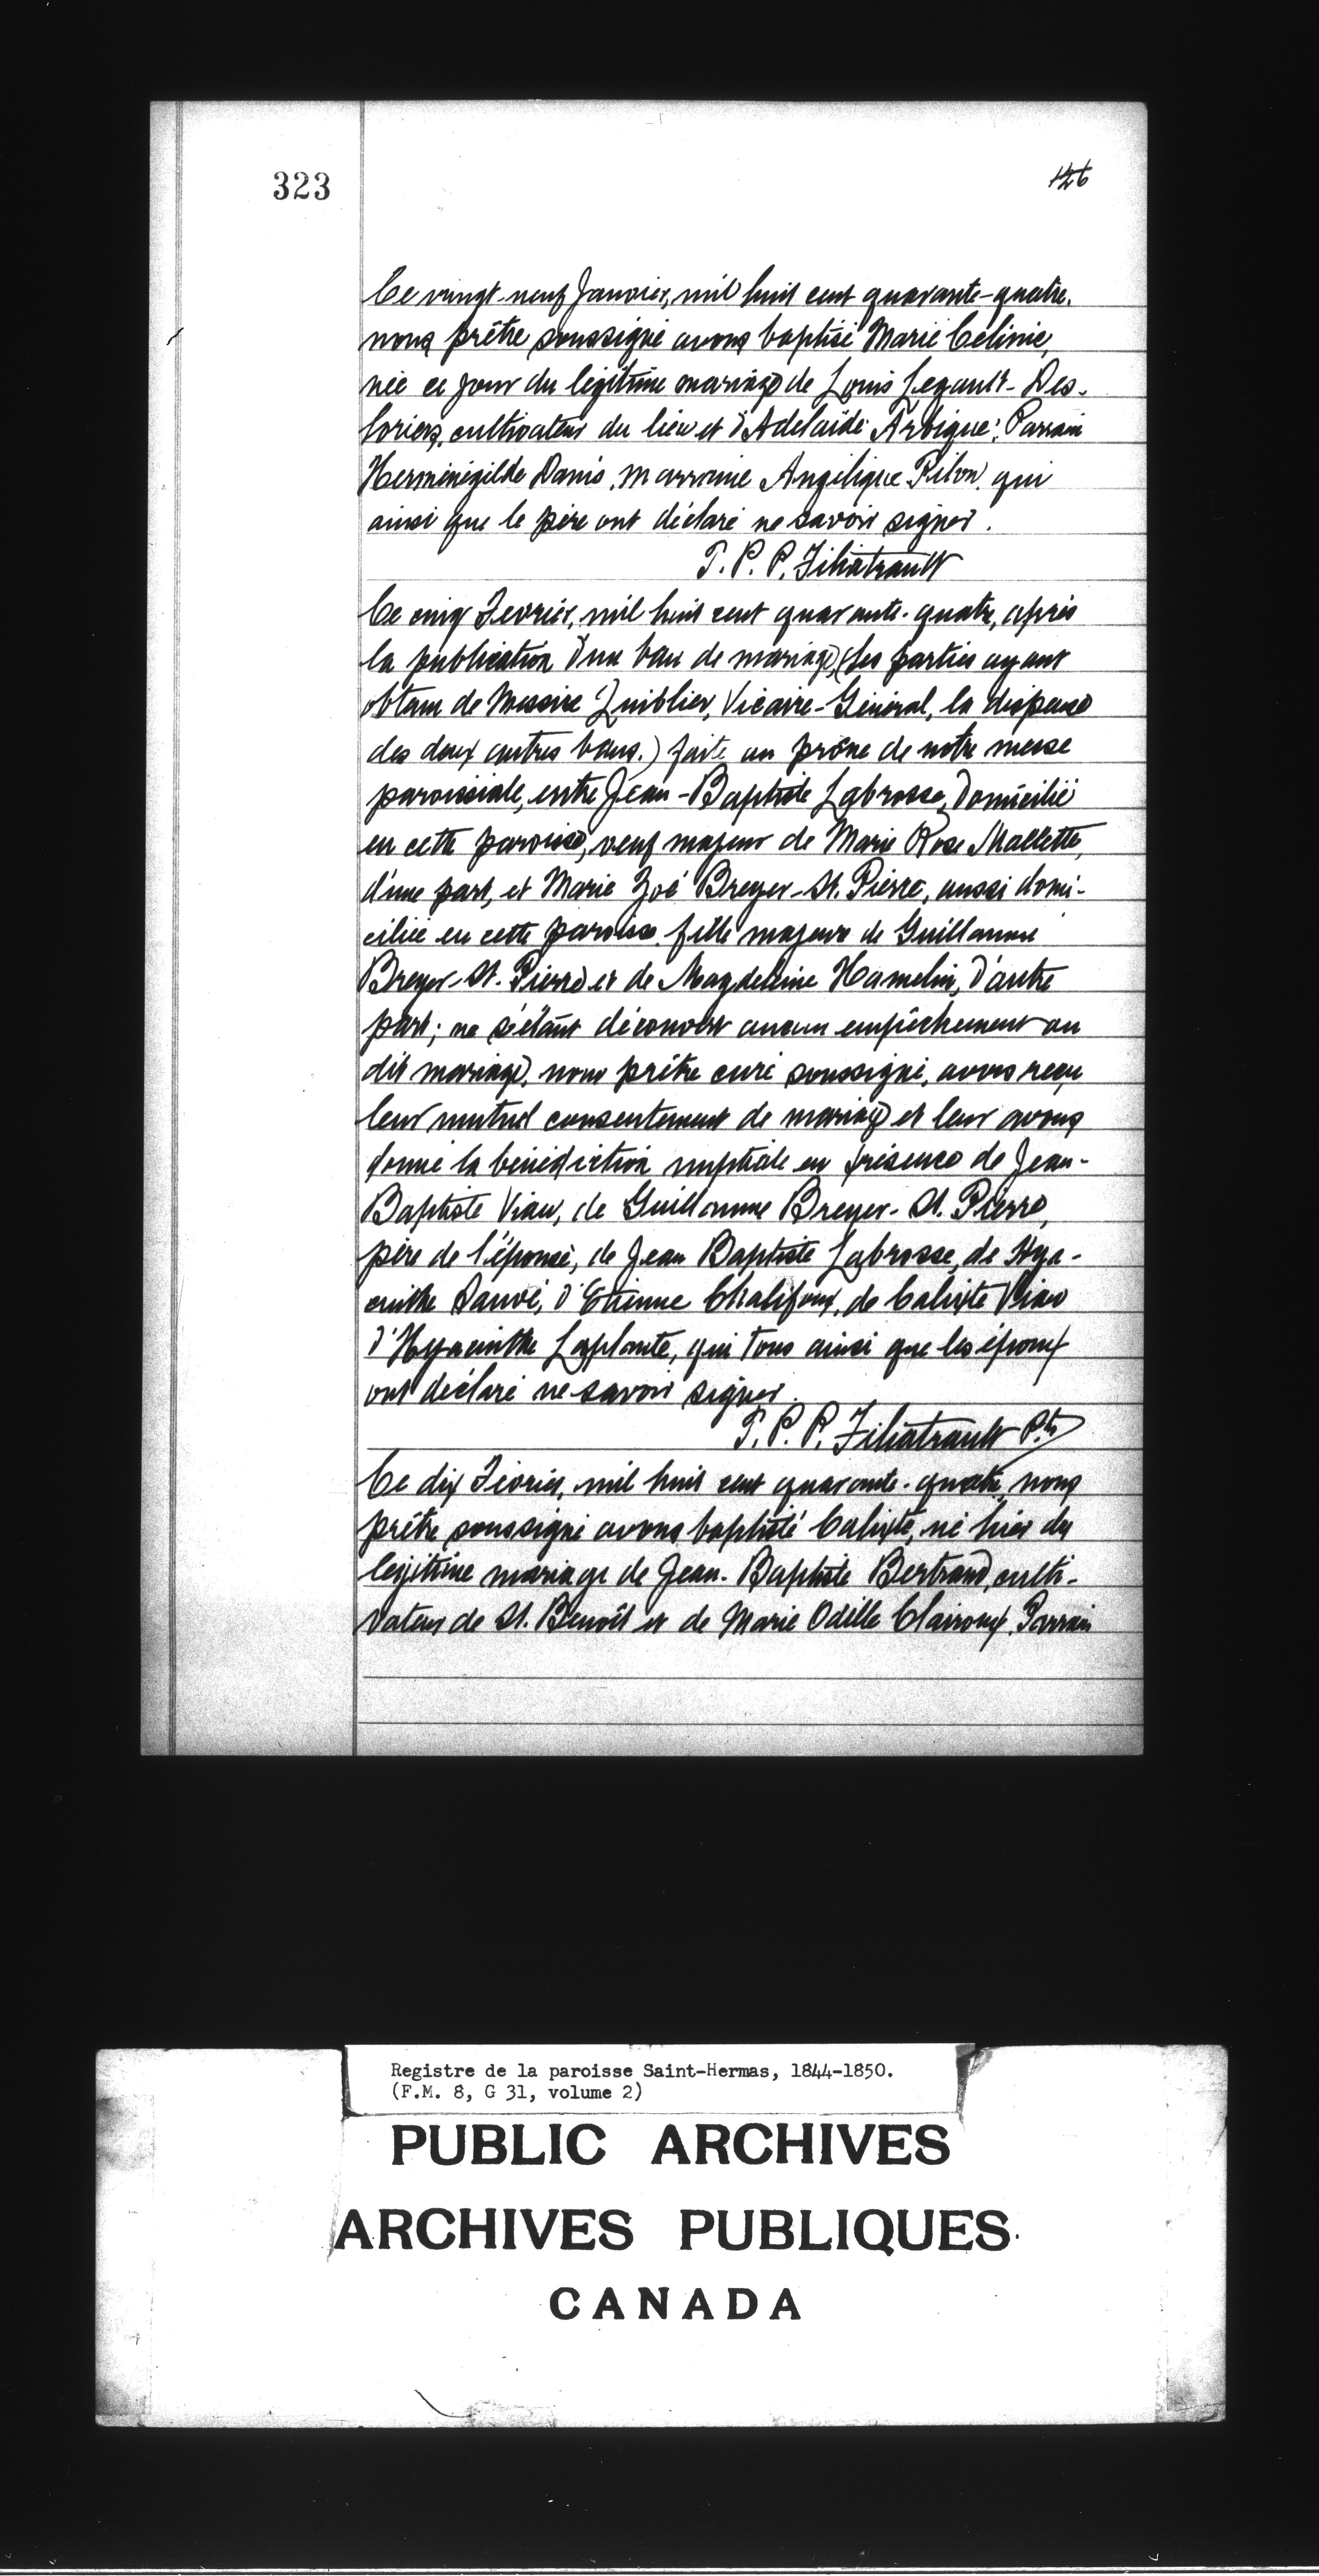 323
126
Ce vingt-neuf Janvier, mil huit cent quarante-quatre,
nous prêtre soussigné avons baptisé Marie Célinie,
née ce jour du légitime mariage de Louis Legault-Des-
loriers, cultivateur du lieu et d'Adelaïde Arbique; Parrain
Herménégilde Danis, marraine Angélique Pilon, qui
ainsi que le père ont déclaré ne savoir signer.
T. P. P. Filiatrault
Ce cinq Fevrier, mil huit cent quarante-quatre, après
la publication d'un ban de mariage, (les parties ayant
obtenu de Messire Quiblier, Vicaire-Général, la dispense
des deux autres bans.) faite au prône de notre messe
paroissiale, entre Jean-Baptiste Labrosse, domicilié
en cette paroisse, veuf majeur de Marie Rose Mallette,
d'une part, et Marie Zoé Breyer-St. Pierre, aussi domi-
ciliée en cette paroisse, fille majeure de Guillaume
Breyer-St. Pierre et de Magdeleine Hamelin, d'autre
part; ne s'étant découvert aucun empêchement au
dit mariage, nous prêtre curé soussigné, avons reçu
leur mutuel consentement de mariage et leur avons
donné la bénédiction nuptiale en présence de Jean-
Baptiste Viau, de Guillaume Breyer-St. Pierre,
père de l'épouse, de Jean Baptiste Labrosse, de Hya-
cinthe Sauvé, d'Etienne Chalifoux, de Calixte Viau
d'Hyacinthe Laplante, qui tous ainsi que les époux
ont déclaré ne savoir signer.
T. P. P. Filiatrault Ptr
Ce dix Février, mil huit cent quarante-quatre, nous
prêtre soussigné avons baptisé Calixte, né hier du
legitime mariage de Jean-Baptiste Bertrand, culti-
vateur de St. Benoît et de Marie Odille Clairoux. Parrain
Registre de la paroisse Saint-Hermas, 1844-1850.
(F.M. 8, G 31, volume 2)
PUBLIC ARCHIVES
ARCHIVES PUBLIQUES
CANADA